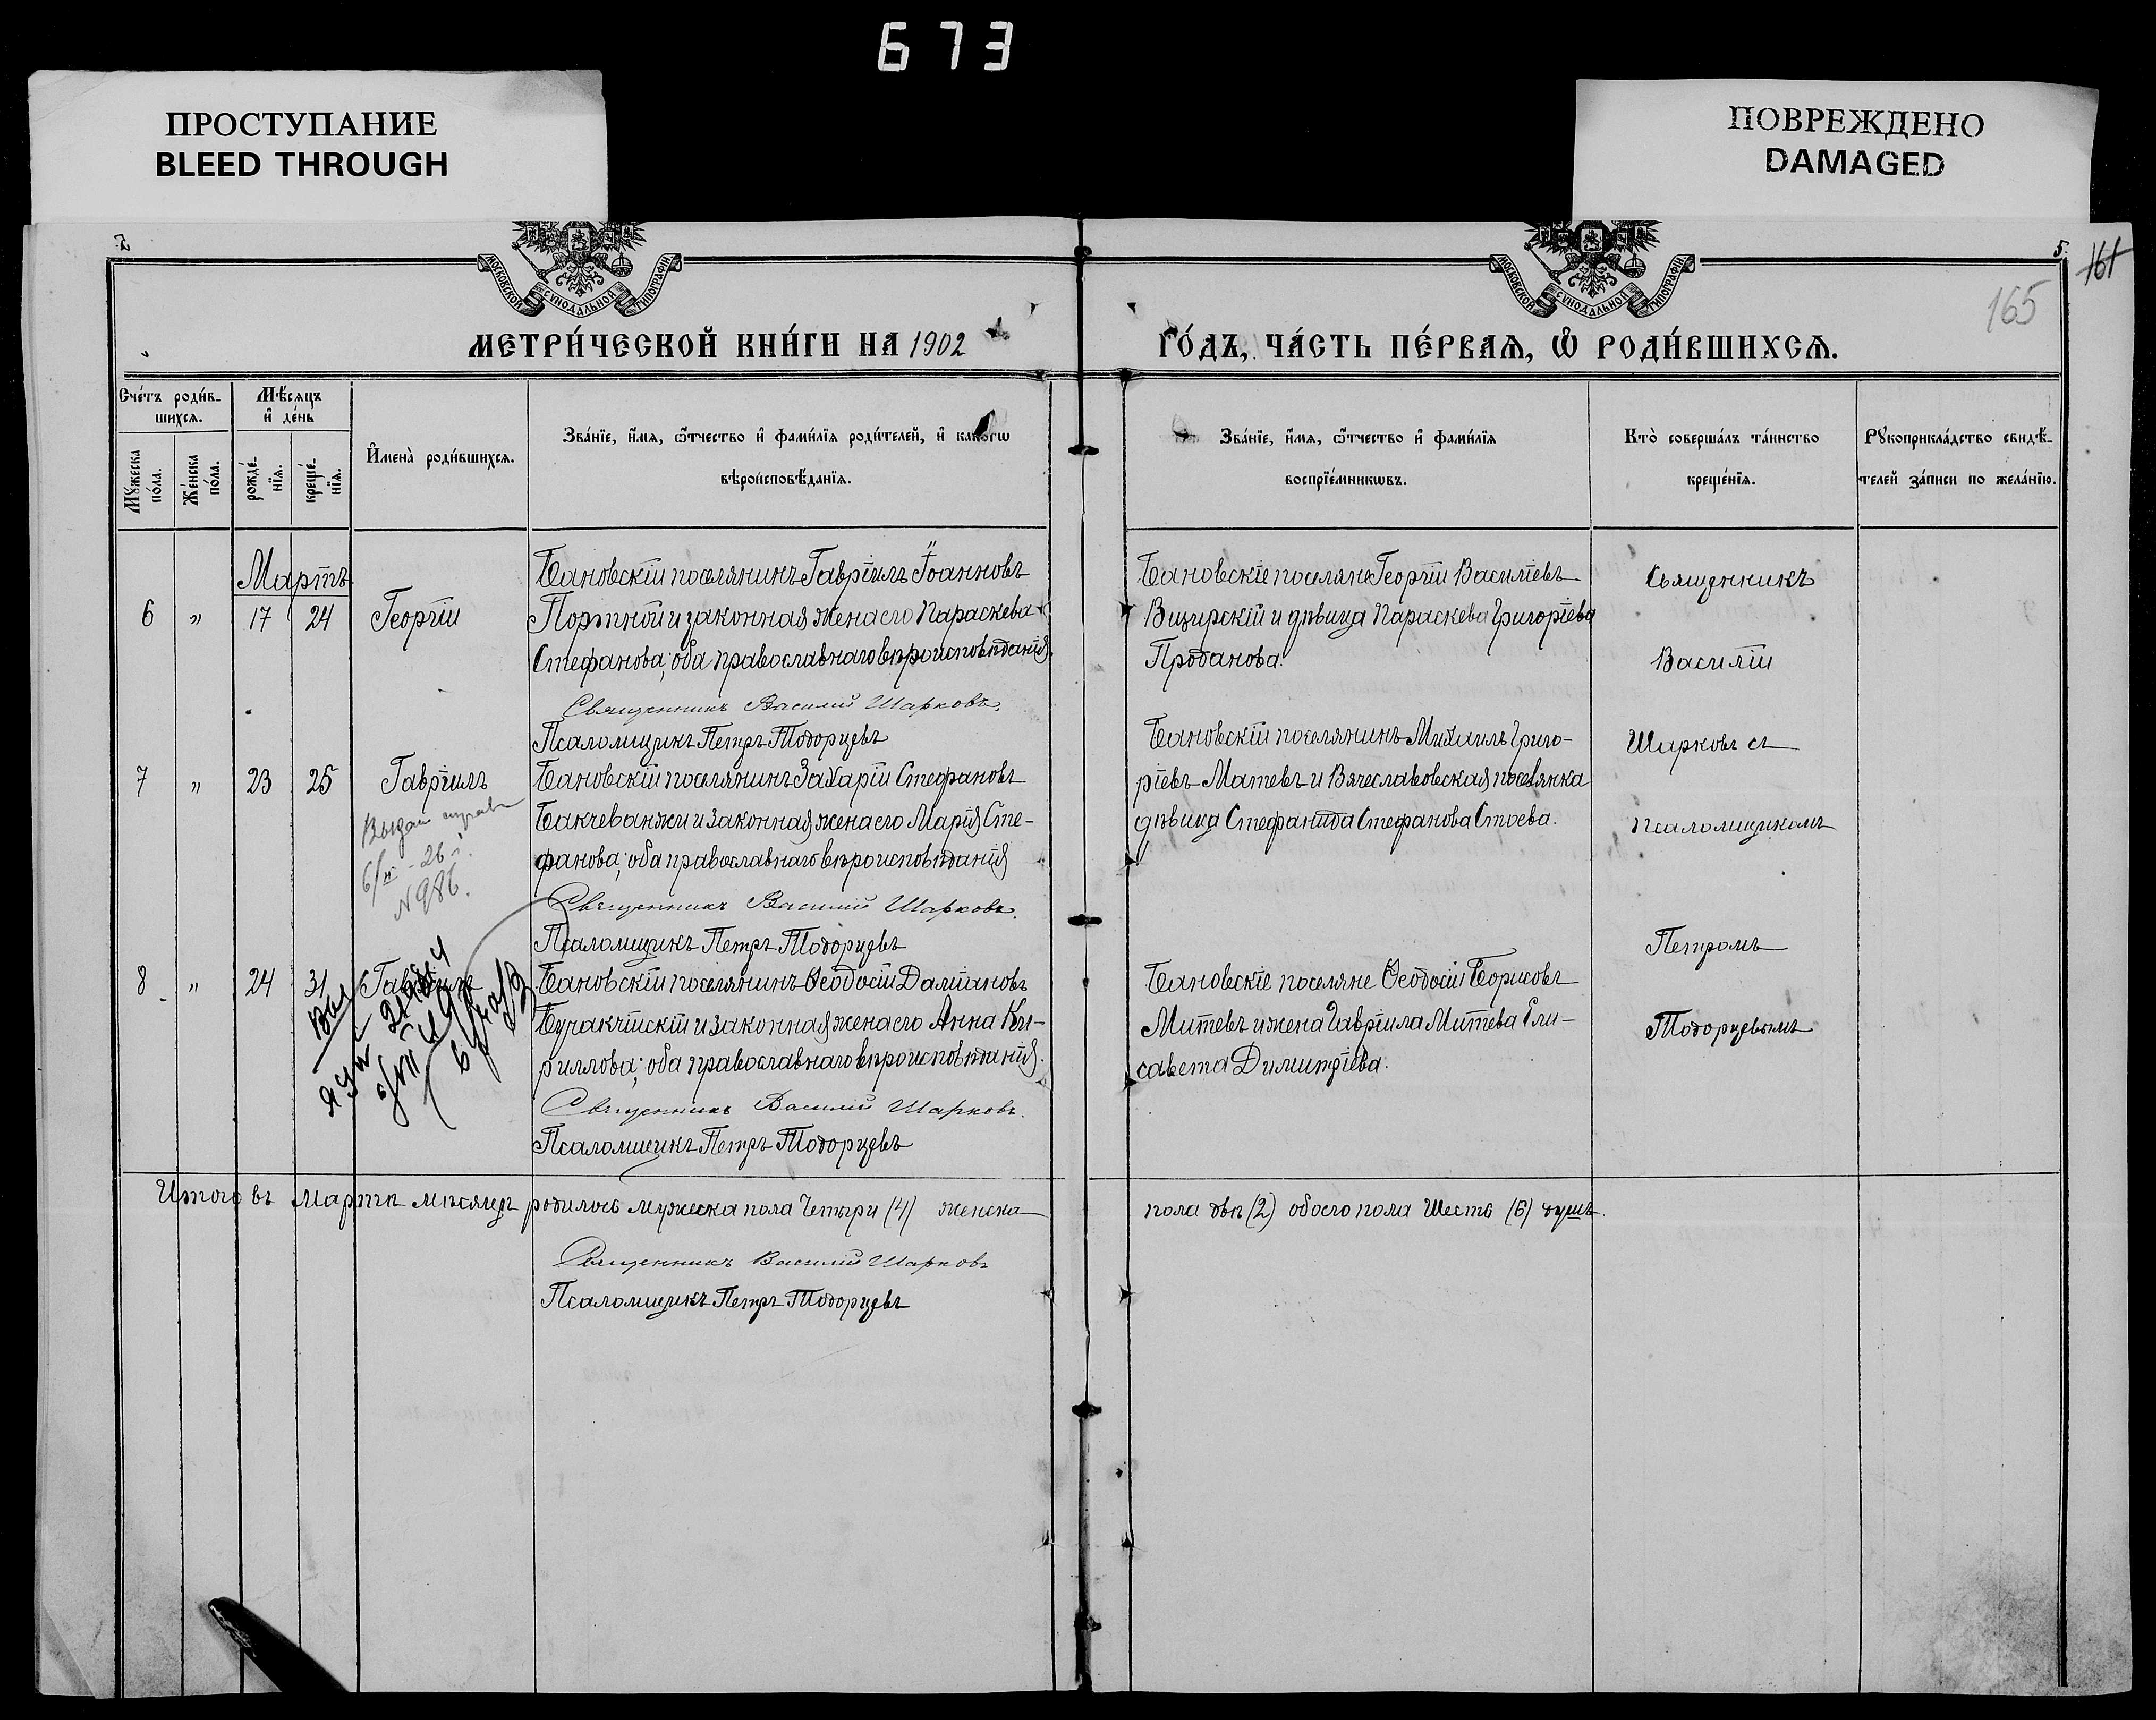 673
ПРОСТУПАНИЕ
BLEED THROUGH
ПОВРЕЖДЕНО
DAMAGED
МОСКОВСКОЙ СѴНОДАЛЬНОЙ ТИПОГРАФІИ
МОСКОВСКОЙ СѴНОДАЛЬНОЙ ТИПОГРАФІИ
5.
161
165
МЕТРИ́ЧЕСКОЙ КНИ́ГИ НА 1902
ГО́ДЪ, ЧА́СТЬ ПЕ́РВАЯ, Ѡ РОДИ́ВШИХСѦ.
Сче́тъ роди́в-
шихсѧ.
Мѣ́сѧцъ
и҆ де́нь
Мꙋ́жеска
по́ла.
Же́нска
по́ла.
рожде́-
нїѧ.
креще́-
нїѧ.
И҆мена̀ роди́вшихсѧ.
Зва́нїе, и҆́мѧ, ѻ҆́тчество и҆ фами́лїѧ роди́телей, и҆ како́гѡ
вѣроисповѣ́данїѧ.
Зва́нїе, и҆́мѧ, ѻ҆́тчество и҆ фами́лїѧ
воспрїе́мникѡвъ.
Кто̀ соверша́лъ та́инство
креще́нїѧ.
Рꙋкоприкла́дство свидѣ́-
телей за́писи по жела́нїю.
Мартъ
6 " 17 24 Георгій
Бановскій поселянинъ Гавріилъ Іоанновъ
Портной и законная жена его Параскева
Стефанова; оба православнаго вѣроисповѣданія.
Священникъ Василій Шарковъ.
Псаломщикъ Петръ Тодорцевъ
Бановскіе поселяне Георгій Василіевъ
Визирскій и дѣвица Параскева Григоріева
Проданова.
Священникъ
Василій
Шарковъ съ
псаломщикомъ
Петромъ
Тодорцевымъ
7 " 23 25 Гавріилъ
№ 986.
Бановскій поселянинъ Захарій Стефановъ
Бакчеванжи и законная жена его Марія Сте-
фанова; оба православнаго вѣроисповѣданія
Священникъ Василій Шарковъ.
Псаломщикъ Петръ Тодорцевъ
Бановскій поселянинъ Михаилъ Григо-
ріевъ Матевъ и Вячеславовская поселянка
дѣвица Стефанида Стефанова Стоева.
8 " 24 31 Гавріилъ
Бановскій поселянинъ Ѳеодосій Даміановъ
Бучакчійскій и законная жена его Анна Ки-
риллова; оба православнаго вѣроисповѣданія.
Священникъ Василій Шарковъ.
Псаломщикъ Петръ Тодорцевъ
Бановскіе поселяне Ѳеодосій Борисовъ
Митевъ и жена Гавріила Митева Ели-
савета Димитріева.
Итого въ Мартѣ мѣсяцѣ родилось мужеска пола Четыри (4) женска
пола двѣ (2) обоего пола Шесть (6) душъ.
Священникъ Василій Шарковъ
Псаломщикъ Петръ Тодорцевъ